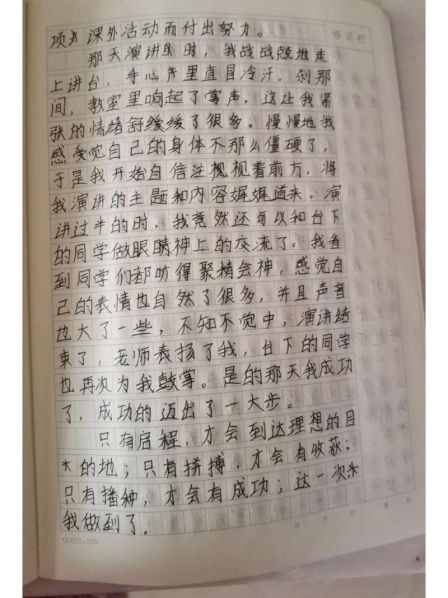 项目课外活动而付出努力。
修正栏
那天演讲时，我战战兢兢地走
上讲台，手心里直冒冷汗。刹那
间，教室里响起了掌声，这让我紧
张的情绪舒缓缓了很多。慢慢地我
感受觉自己的身体不那么僵硬了，
于是我开始自信注视视着前方，将
我演讲的主题和内容娓娓道来。演
讲过半的时，我竟然还可以和台下
的同学做眼睛神上的交流了。我看
到同学们都听得聚精会神，感觉自
己的表情也自然了很多，并且声音
也大了一些，不知不觉中，演讲结
束了，老师表扬了我，台下的同学
也再次为我鼓掌。是的那天我成功
了，成功的迈出了一大步。
只有启程，才会到达理想的目
的地；只有拼搏，才会有收获；
只有播种，才会有成功；这一次
我做到了。